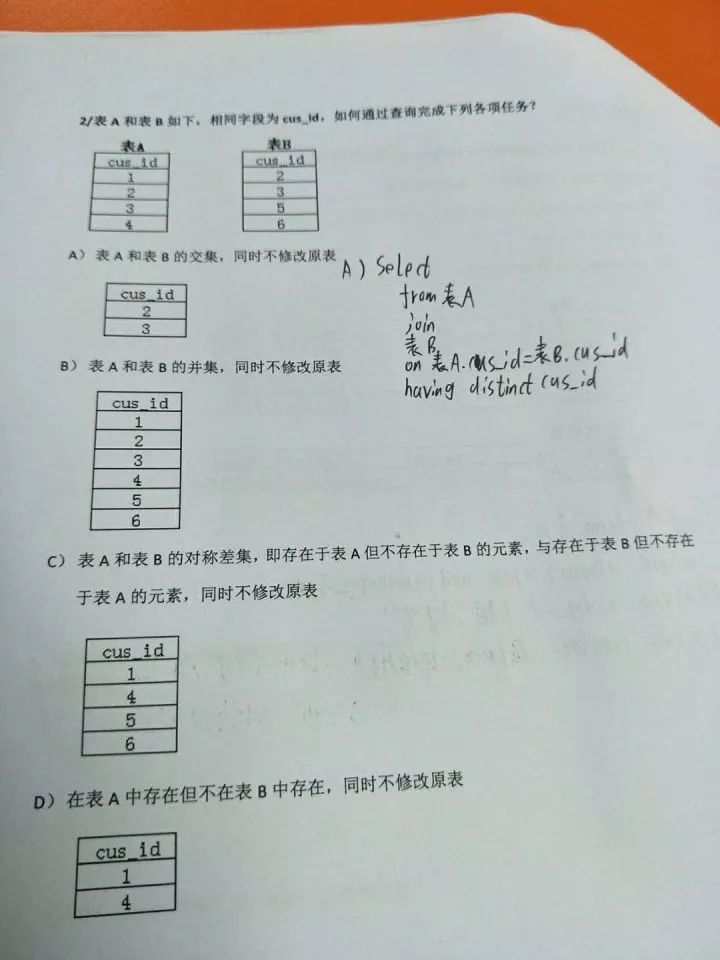 2/表 A 和表 B 如下，相同字段为 cus_id，如何通过查询完成下列各项任务？
表A
cus_id
1
2
3
4
表B
cus_id
2
3
5
6
A） 表 A 和表 B 的交集，同时不修改原表
cus_id
2
3
A) Select
from 表A
join
表B
on 表A.cus_id=表B.cus_id
having distinct cus_id
B） 表 A 和表 B 的并集，同时不修改原表
cus_id
1
2
3
4
5
6
C） 表 A 和表 B 的对称差集，即存在于表 A 但不存在于表 B 的元素，与存在于表 B 但不存在
于表 A 的元素，同时不修改原表
cus_id
1
4
5
6
D） 在表 A 中存在但不在表 B 中存在，同时不修改原表
cus_id
1
4